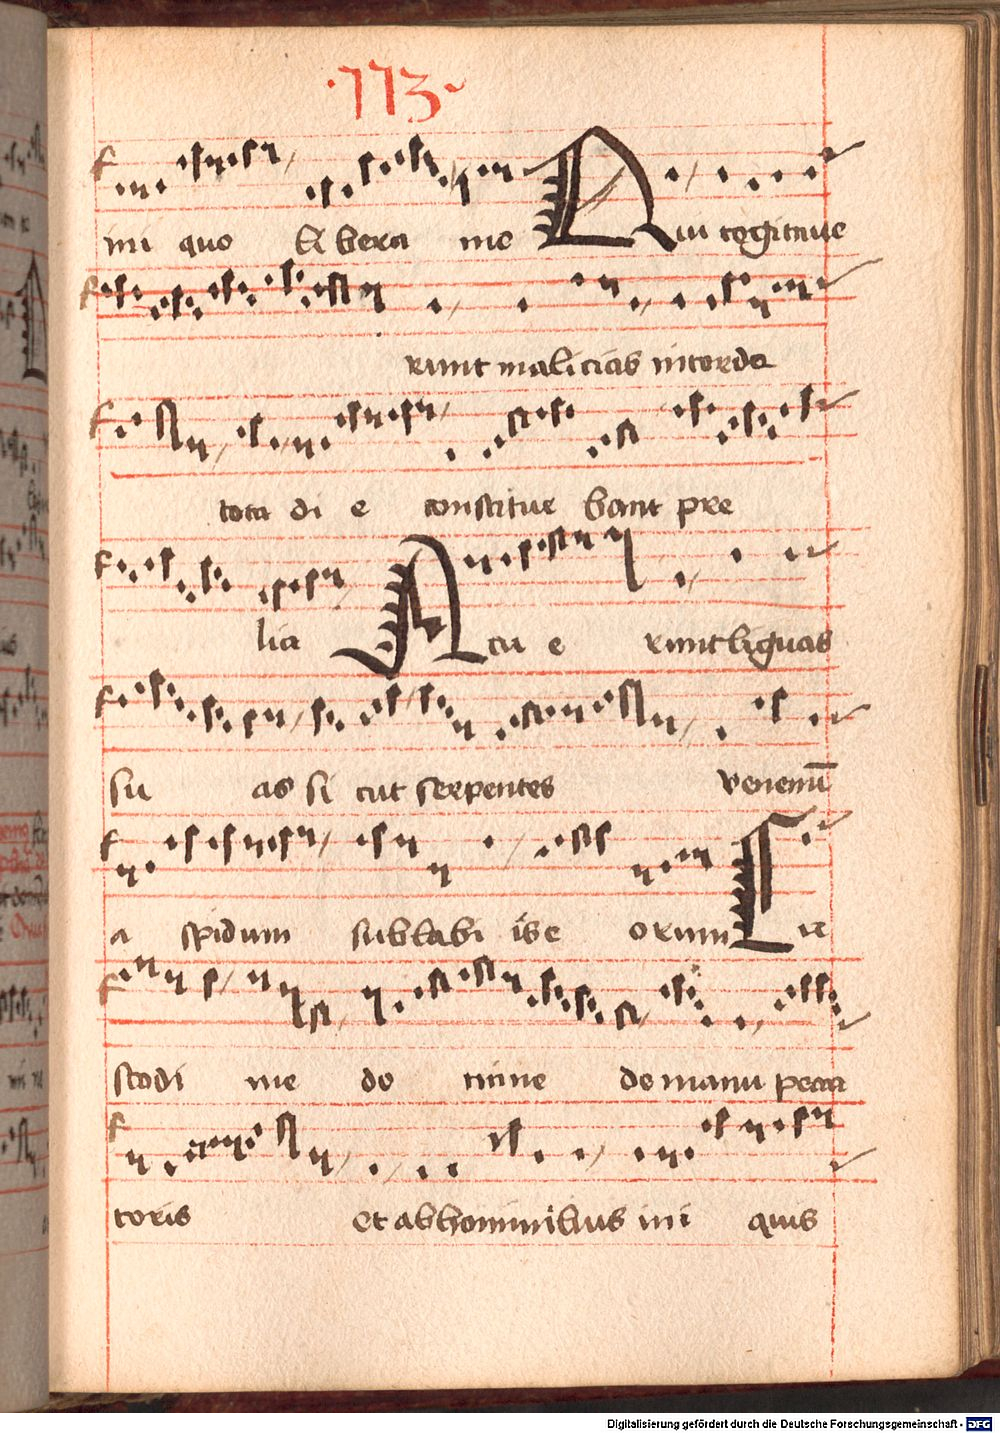 ·113·
mi quo libera me Qui cogitaue
runt malicias in corde
tota di e constitue bant pre
lia Acu e runt liguas
su as si cut serpentes venenū
a spidum sub labi is e orum Cu
stodi me do mine de manu pecca
toris et ab hominibus ini quis
Digitalisierung gefördert durch die Deutsche Forschungsgemeinschaft - DFG